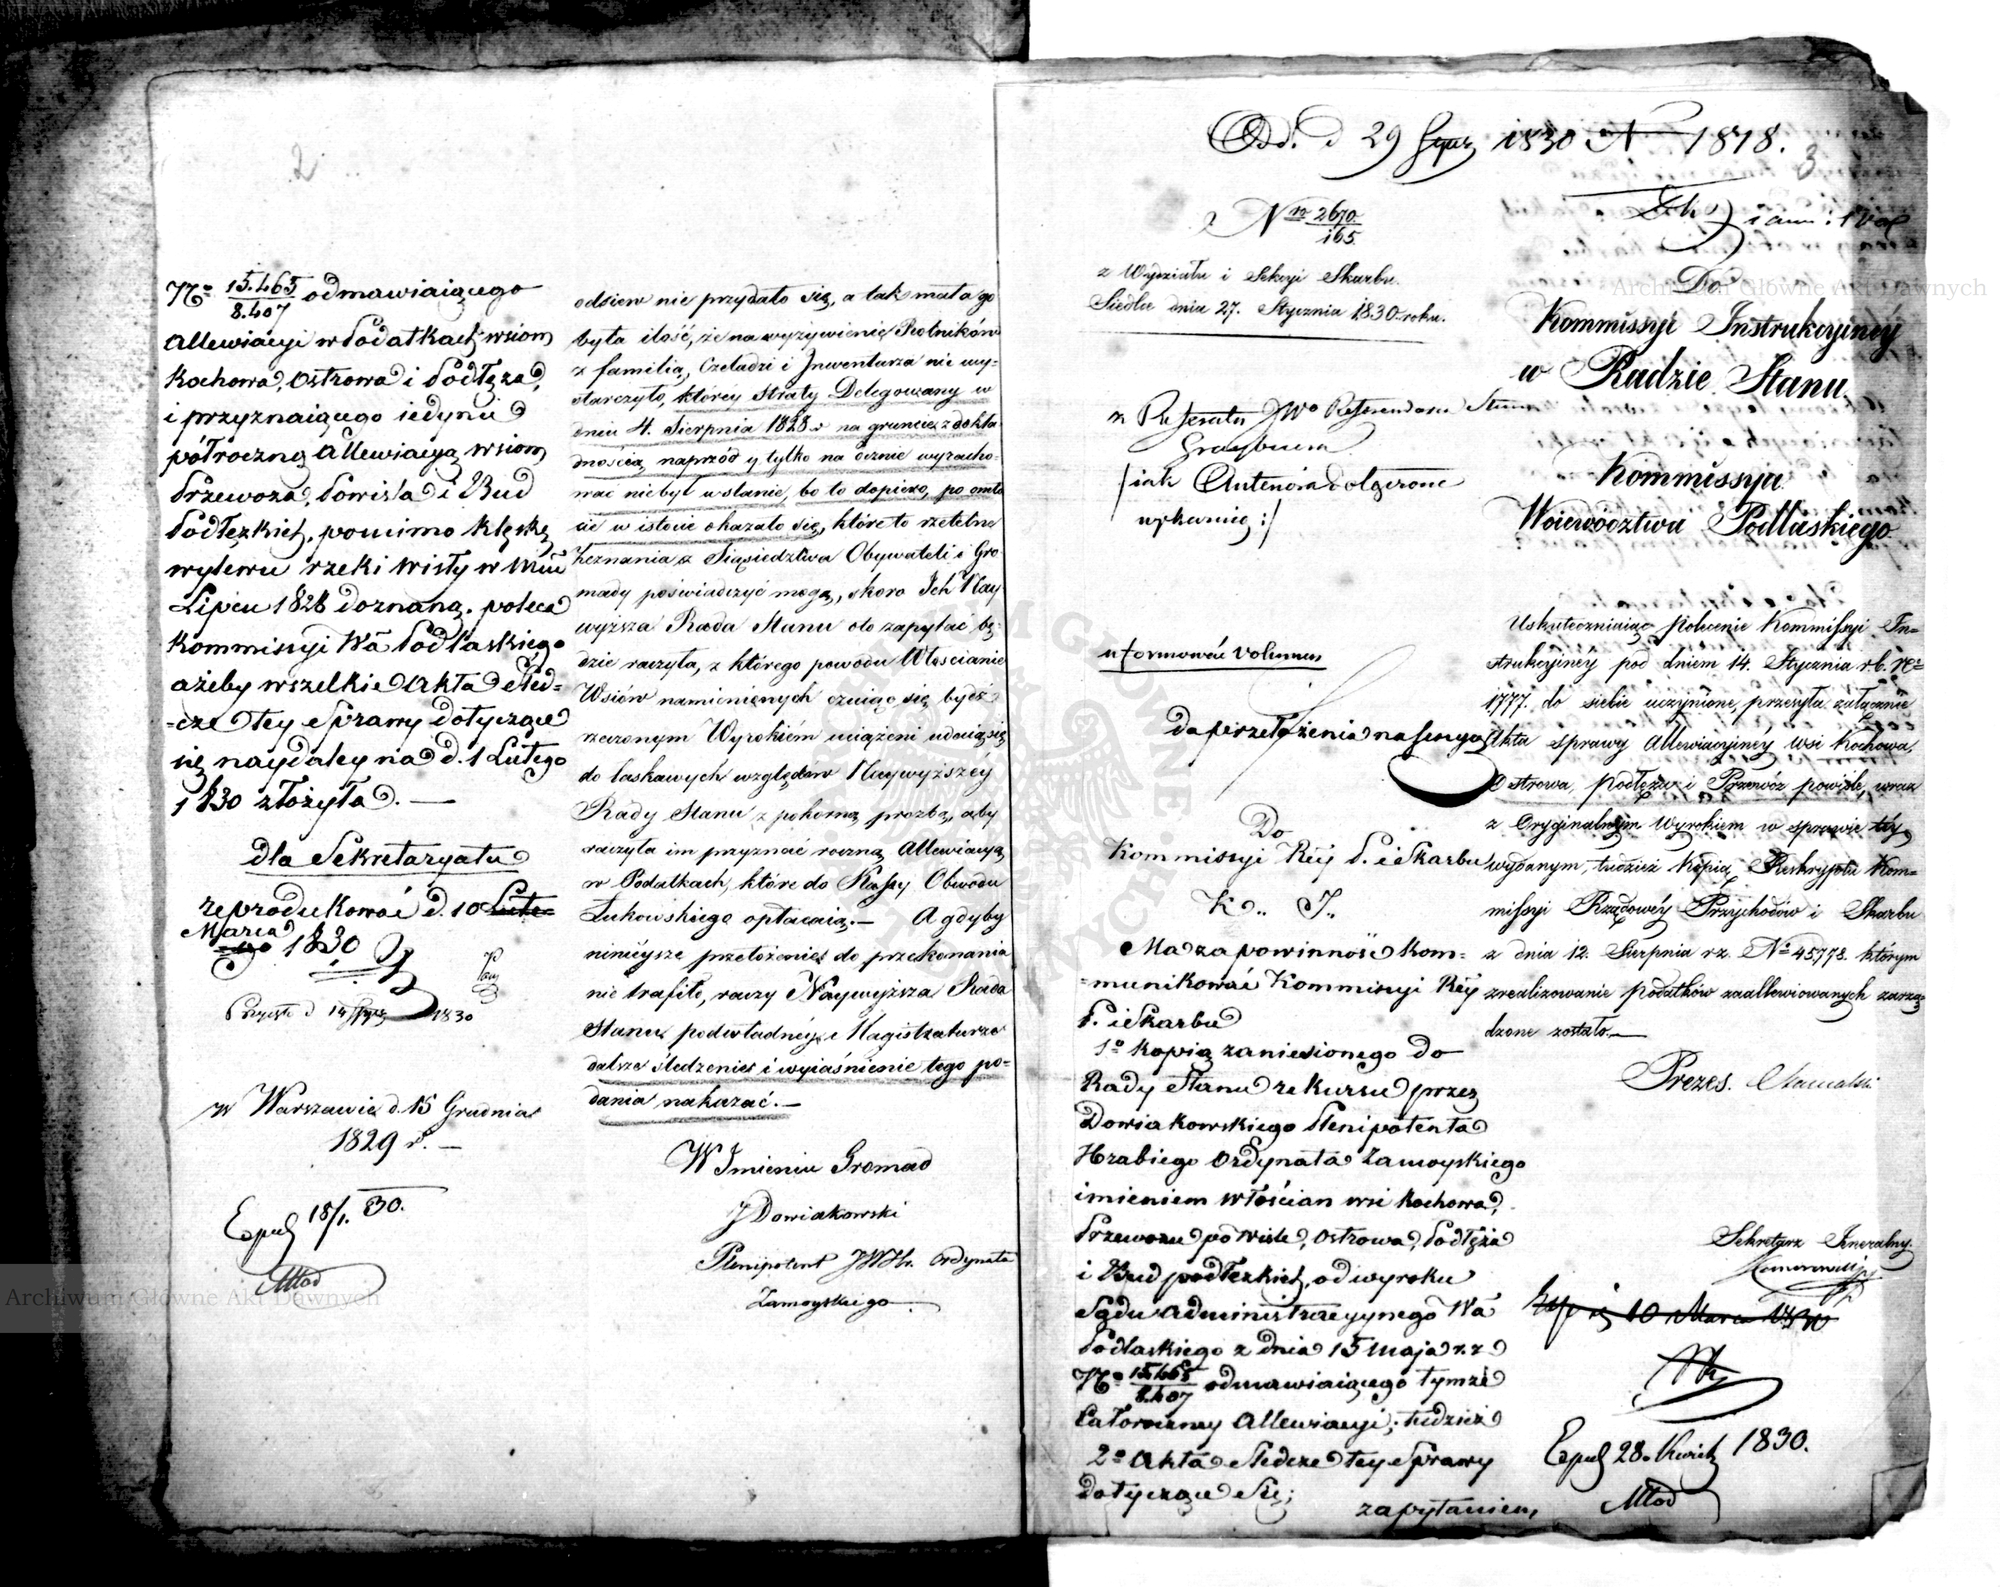 2
No 15.465
8.407
odmawiaiącego
Allewiacyi w Podatkach wsiom
Kochowa, Ostrowa i Podłęża,
i przyznaiącego iedynie
półroczną Allewiacyą wsiom
Przewoza, Powisla i Bud
Podłęzkich, pomimo klęskę
wylewu rzeki Wisły w Mcu
Lipcu 1828 doznaną, poleca
Kommissyi Wa Podlaskiego
ażeby wszelkie Akta Śled-
-cze tey Sprawy dotyczące
się naydaley na d. 1 Lutego
1830 złożyła. —
dla Sekretaryatu
reprodukować d. 10 Lute-
Marca
go 1830
1830
W Warszawie d. 15 Grudnia
1829 r. —
Exped 18/1. 30.
Młod
odsiew nie przydało się, a tak mała go
była ilość, że na wyżywienie Rolników
z familią, Czeladzi i Inwentarza nie wy-
starczyło, którey straty Delegowany w
dniu 4. Sierpnia 1828 r na gruncie z dokła
dnością naprzód y tylko na ocznie wyracho-
wać niebył w stanie, bo to dopiero, po omło
cie w istocie okazało się, które to rzetelne
zeznania z Sąsiedztwa Obywateli i Gro
mady poświadczyć mogą, skoro Ich Nay
wyższa Rada Stanu oto zapytać bę-
dzie raczyła, z którego powodu Włościanie
Wsiów namienionych czuiąc się bydź
rzeczonym Wyrokiem uciążeni udaią się
do łaskawych względów Naywyższéy
Rady Stanu z pokorną prozbą, aby
raczyła im przyznać roczną Allewiacyą
w Podatkach, które do Kassy Obwodu
Łukowskiego opłacaią. — A gdyby
ninieysze przełożenie do przekonania
nie trafiło, raczy Naywyższa Rada
Stanu podwładnéy Magistraturze
dalsze śledzenie i wyiaśnienie tego po-
dania nakazać. —
W Imieniu Gromad
J Dowiakowski
Plenipotent JWHr. Ordynata
Zamoyskiego.
Od. d 29 Stycz 1830 N 1818.
3
No 2670.
165.
z Wydziału i Sekcyi Skarbu.
Siedlce dnia 27. Stycznia 1830 roku.
z Referatu JWo Referendarza Stanu
Grzybowsk
/ iak Antenóra dołączone
wykazuie :/
uformować volumen
do przełożenia na sessyą
Do
Kommissyi Réj P. i Skarbu
K.. I..
Ma za powinność kom-
-munikować Kommissyi Réj
P. i Skarbu
1o kopią zaniesionego do
Rady Stanu rekursu przez
Dowiakowskiego Plenipotenta
Hrabiego Ordynata Zamoyskiego
imieniem włościan wsi Kochowa,
Przewozu powisle, Ostrowa, Podłęża
i Bud podłezkich, od wyroku
Sądu Administracyynego Wa
Podlaskiego z dnia 15 maja r. z
No 15.465
8.407
odmawiaiącego tymże
całoroczney Allewiacyi; tudzież
2o Akta Śledcze tey Sprawy
dotyczące Się;
zapytaniem,
Do
Kommissyi Instrukcyinéy
w Radzie Stanu.
Kommissya
Woiewództwa Podlaskiego.
Uskuteczniaiąc polecenie Kommissyi In-
strukcyinéy pod dniem 14. Stycznia rb. No
1777. do siebie uczynione, przesyła załącznie
Akta sprawy Allewiacyinéy wsi Kochowa
Ostrowa, Podłęża i Przewóz powiśle, wraz
z Oryginalnym Wyrokiem w sprawie téy
wydanym, tudzież Kopią Reskryptu Kom-
missyi Rządowéy Przychodów i Skarbu
z dnia 12. Sierpnia rz. No 45778. którym
zrealizowanie podatków zaallewiowanych zarzą-
dzone zostało. —
Prezes.
Sekretarz Jeneralny.
10 Marca 1830
Exped 28. Kwiet 1830.
Młod
Archiwum Główne Akt Dawnych
Archiwum Główne Akt Dawnych